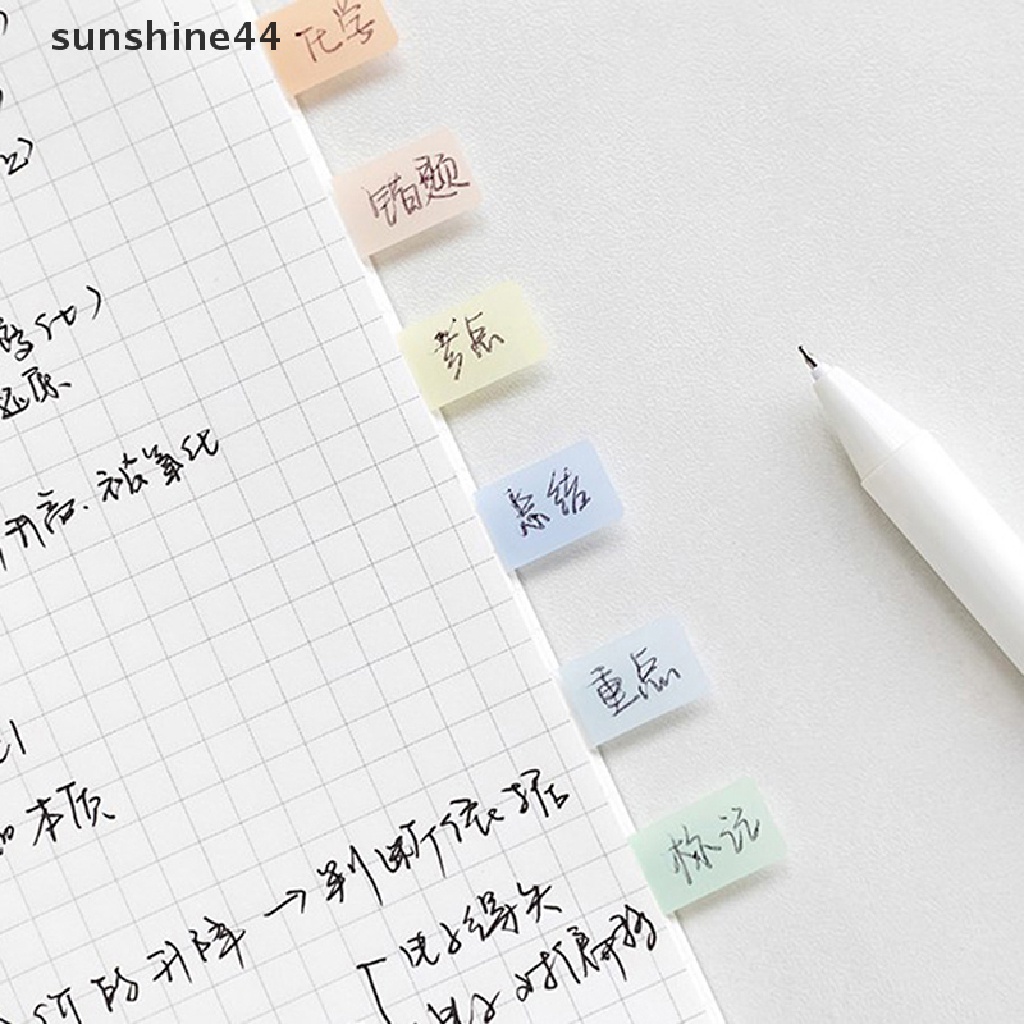 sunshine44
化学
错题
考点
总结
重点
标记
氧化)
还原
升高.被氧化
本质
的升降→判断依据
电子得失
电子对偏移